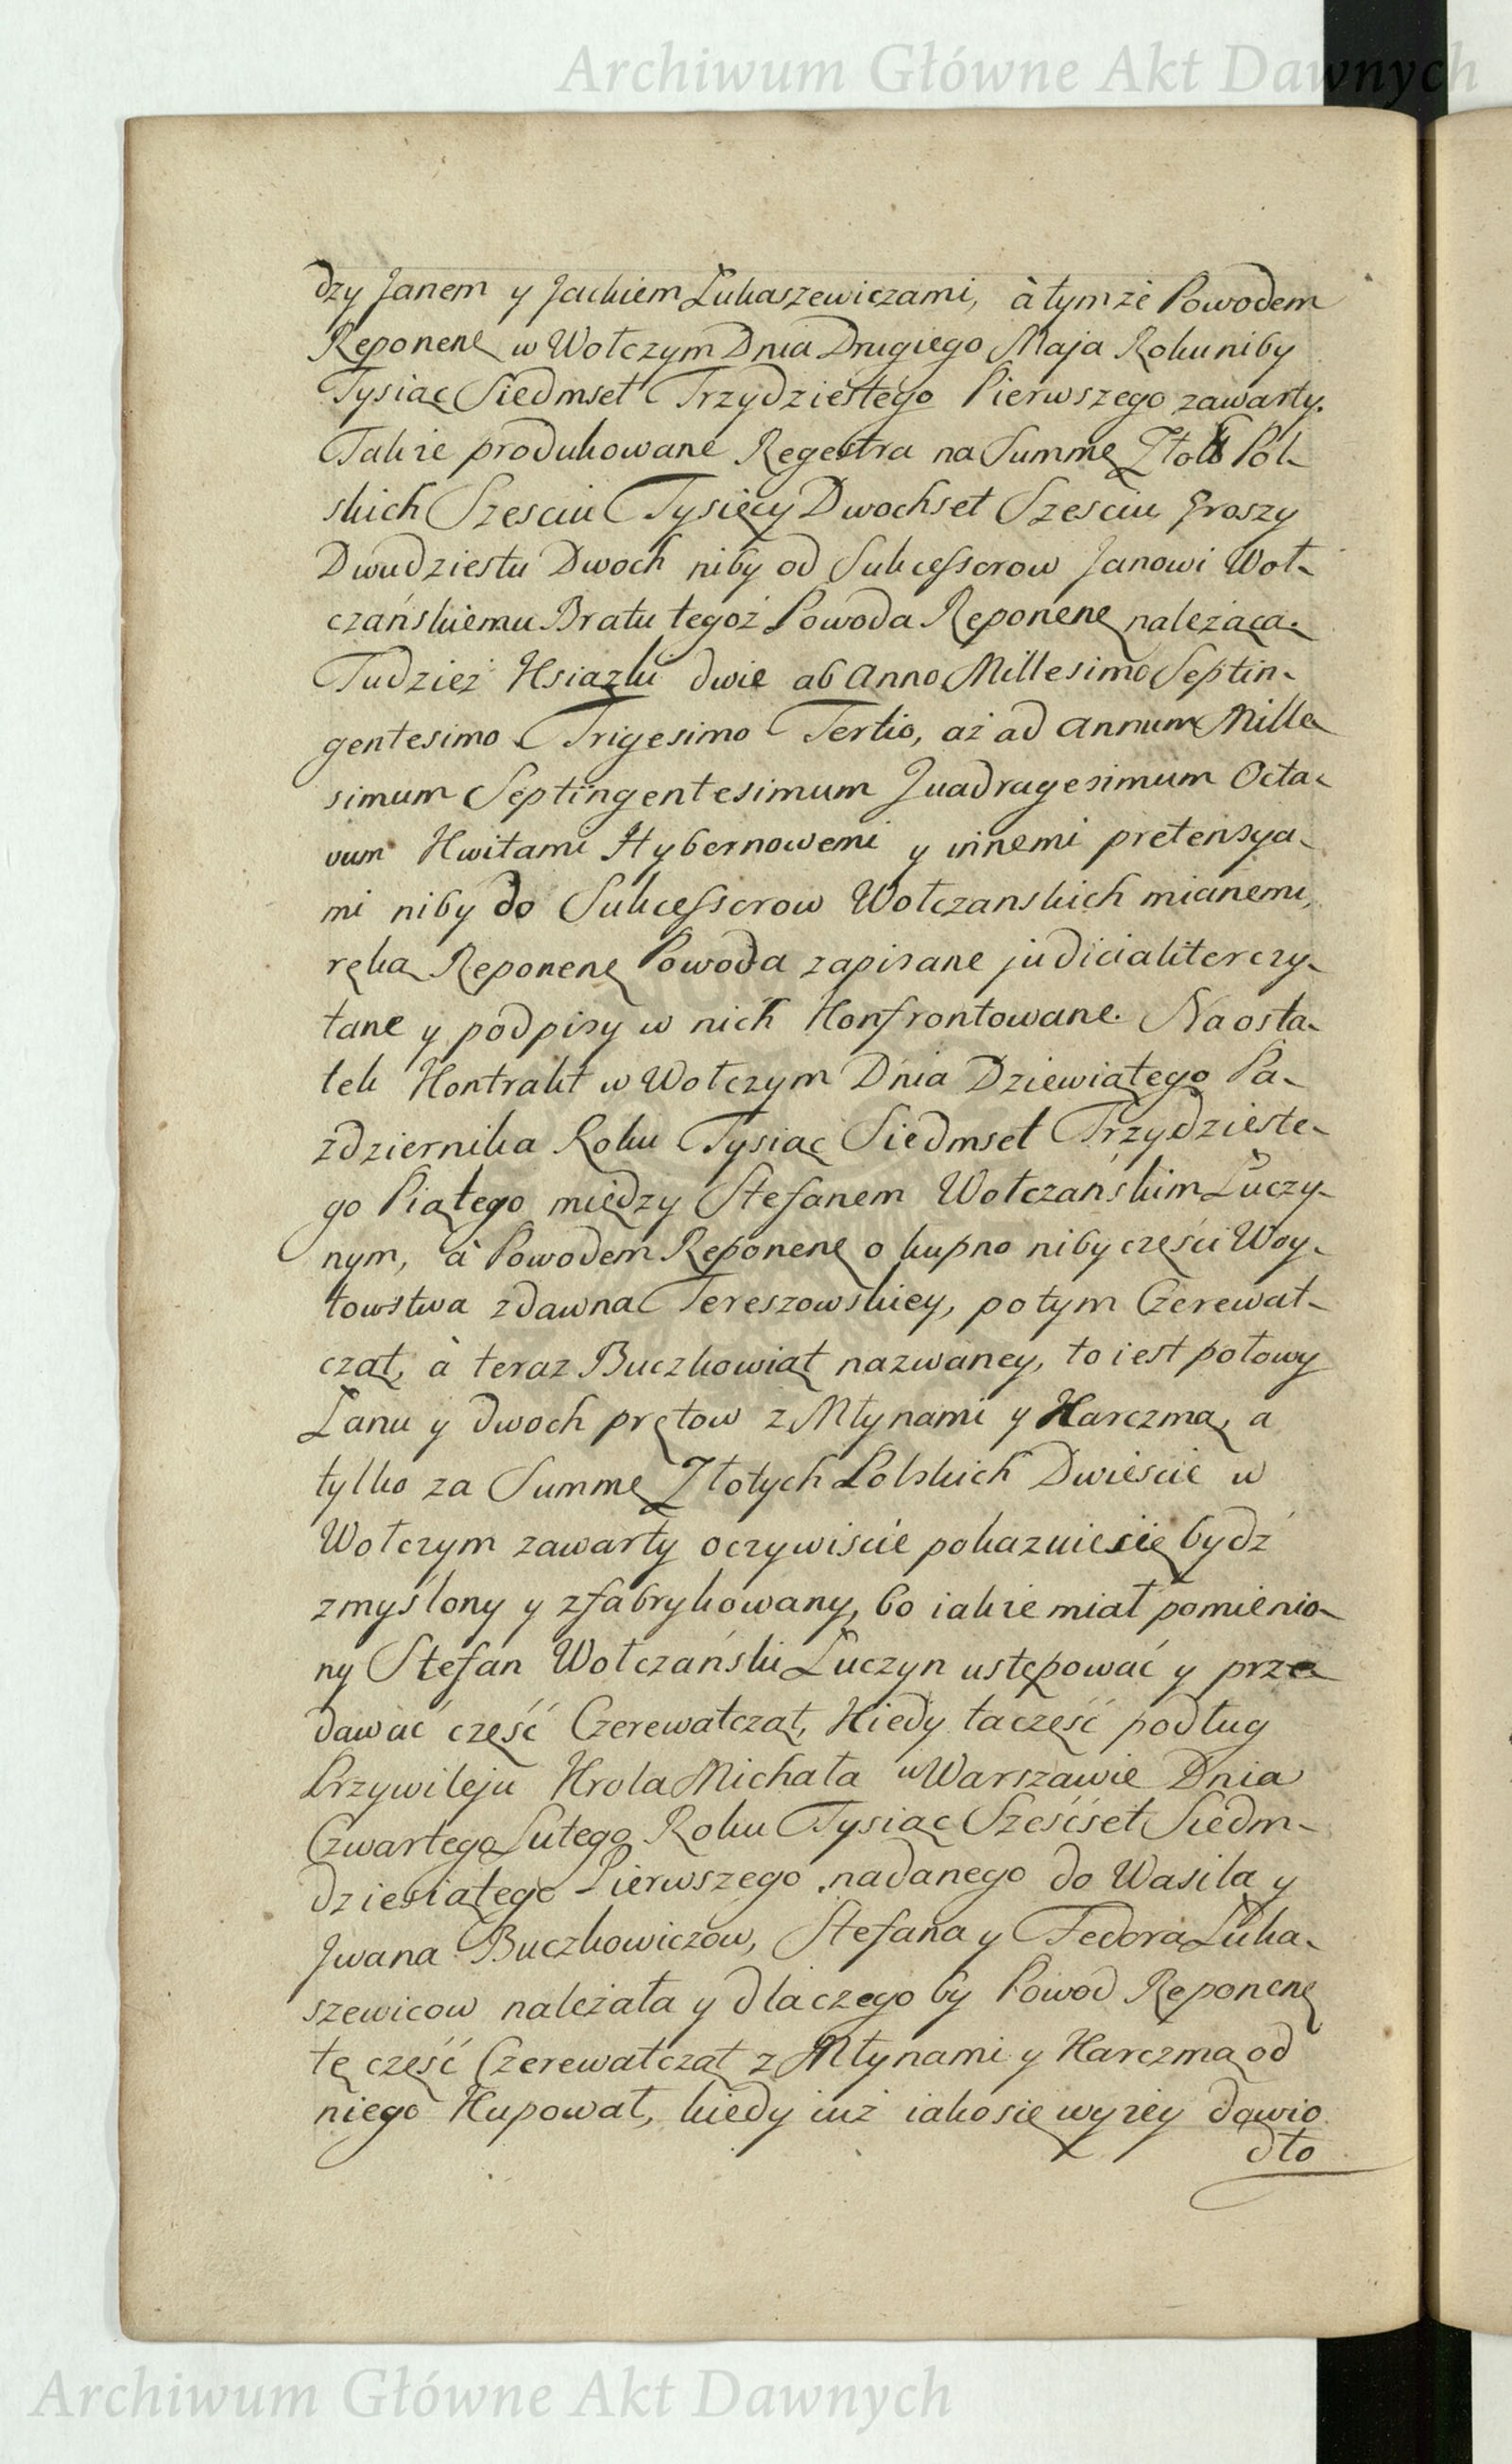 Archiwum Główne Akt Dawnych
dzy Janem y Jackiem Łukaszewiczami, à tymże Powodem
Reponenę w Wołczym Dnia Drugiego Maja Roku niby
Tysiąc Siedmset Trzydziestego Pierwszego zawarty.
Takze produkowane Regestra na Summę Złot Pol-
skich Szesciu Tysięcy Dwochset Szesciu Groszy
Dwudziestu Dwoch niby od Sukcessorow Janowi Woł-
czańskiemu Bratu tegoż Powoda Reponenę należąca.
Tudzież Xsiązki dwie ab Anno Millesimo Septin-
gentesimo Trigesimo Tertio, aż ad Annum Mille
simum Septingentesimum Quadragesimum Octa-
vum Kwitami Hybernowemi y innemi pretensya-
mi niby do Sukcessorow Wołczanskich mianemi,
ręką Reponenę Powoda zapisane judicialiter czy-
tane y podpisy w nich Konfrontowane. Na osta-
tek Kontrakt w Wołczym Dnia Dziewiątego Pa-
zdziernika Roku Tysiąc Siedmset Trzydzieste-
go Piątego między Stefanem Wołczańskim Łuczy-
nym, à Powodem Reponenę o kupno niby części Woy-
towstwa zdawna Tereszowskiey, potym Czerewat-
cząt, à teraz Buczkowiąt nazwaney, to iest połowy
Łanu y dwoch prętow z Młynami y Karczmą, a
tylko za Summę Złotych Polskich Dwieście w
Wołczym zawarty oczywiście pokazuie się bydź
zmyślony y zfabrykowany, bo iakże miał pomienio-
ny Stefan Wołczański Łuczyn ustępować y prze
dawać część Czerewatcząt, Kiedy ta część podług
Przywileju Krola Michała w Warszawie Dnia
Czwartego Lutego Roku Tysiąc Sześćset Siedm-
dziesiątego Pierwszego nadanego do Wasila y
Jwana Buczkowiczow, Stefana y Fedora Łuka-
szewicow należała y dlaczego by Powod Reponenę
tę część Czerewatcząt z Młynami y Karczmą od
niego Kupował, kiedy iuż iako się wyżey dowio
dło
Archiwum Główne Akt Dawnych